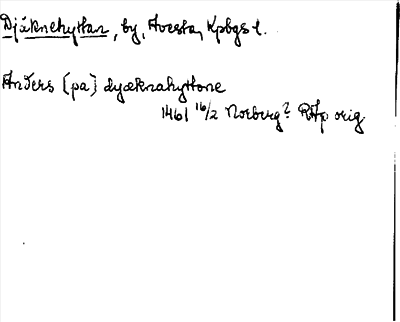 Djäknehyttan, by, Avesta, Kpbgs l.
Anders [pa] dyæknahyttone
1461 16/2 Norberg? RAp orig